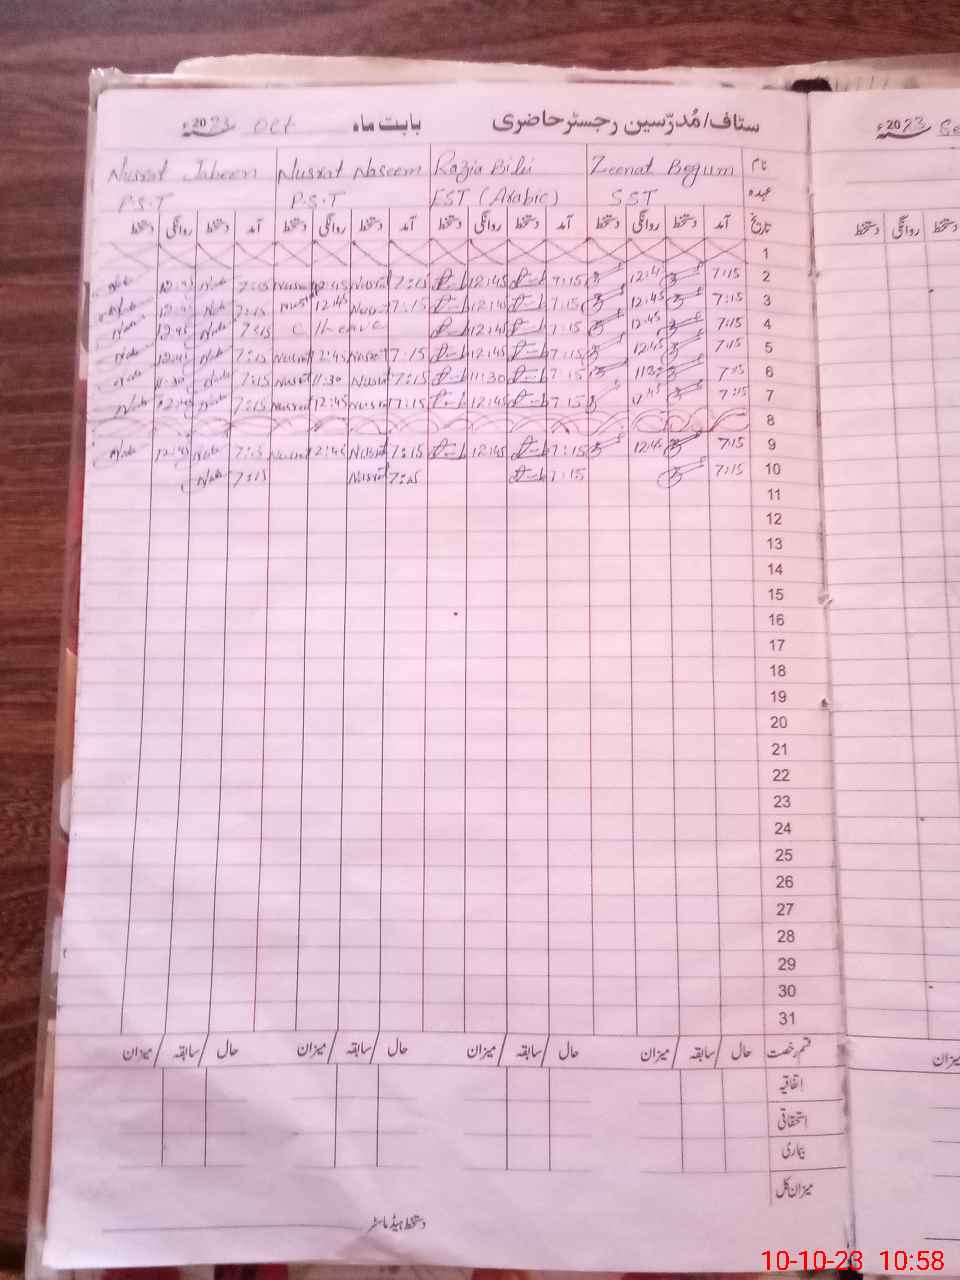 سٹاف/مُدرّسین رجسٹر حاضری بابت ماہ Oct 2023ء
نام Zeenat Begum Razia Bibi Nusrat Naseem Nusrat Jabeen
عہدہ SST EST (Arabic) P.S.T P.S.T
تاریخ آمد دستخط روانگی دستخط آمد دستخط روانگی دستخط آمد دستخط روانگی دستخط آمد دستخط روانگی دستخط
1
2 7:15 12:45 7:15 12:45 7:15 Nusrat 12:45 Nusrat 7:15 12:45
3 7:15 12:45 7:15 12:45 7:15 12:45 7:15 12:45
4 7:15 12:45 7:15 12:45 C/Leave 7:15 12:45
5 7:15 12:45 7:15 12:45 7:15 Nusrat 12:45 Nusrat 7:15 12:45
6 7:15 11:30 7:15 11:30 7:15 Nusrat 11:30 Nusrat 7:15 11:30
7 7:15 12:45 7:15 12:45 7:15 Nusrat 12:45 Nusrat 7:15 12:45
8
9 7:15 12:45 7:15 12:45 7:15 Nusrat 12:45 Nusrat 7:15 12:45
10 7:15 7:15 7:15 Nusrat 7:15
11
12
13
14
15
16
17
18
19
20
21
22
23
24
25
26
27
28
29
30
31
قسم رخصت حال سابقہ/ میزان/ حال سابقہ/ میزان/ حال سابقہ/ میزان/ حال سابقہ/ میزان/
اتفاقیہ
استحقاقی
بیماری
میزان کل
دستخط ہیڈ ماسٹر
2023ء
دستخط روانگی دستخط
میزان
10-10-23 10:58